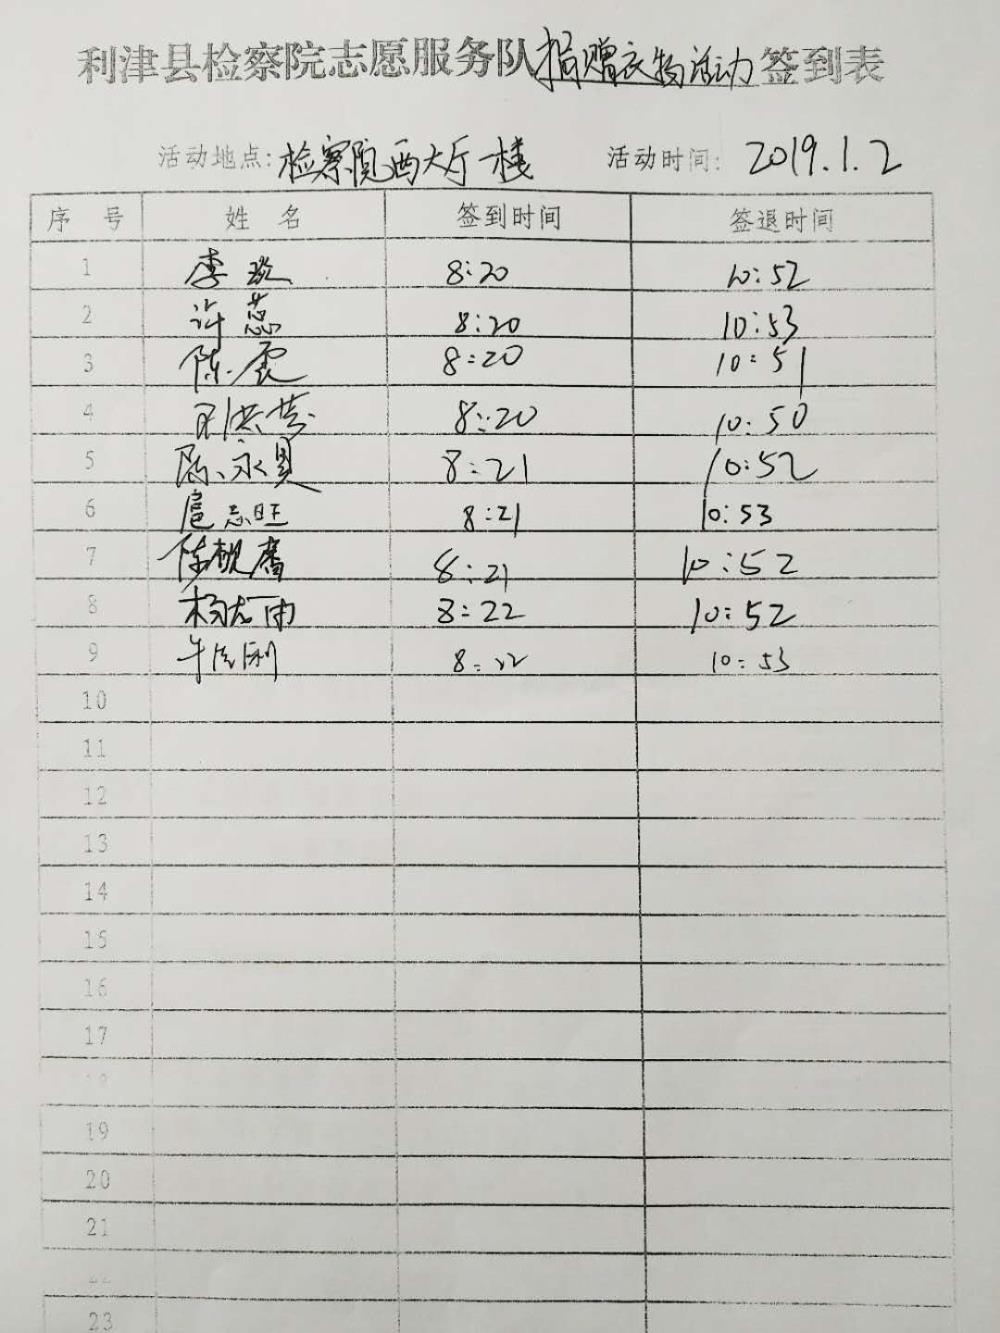 利津县检察院志愿服务队捐赠衣物活动签到表
活动地点:检察院西大厅一楼 活动时间: 2019.1.2
序号 姓名 签到时间 签退时间
1 李 8:20 10:52
2 许蕊 8:20 10:53
3 陈震 8:20 10:51
4 8:20 10:50
5 陈永 8:21 10:52
6 扈志旺 8:21 10:53
7 陈靓 8:21 10:52
8 杨 8:22 10:52
9 牛 8:22 10:53
10
11
12
13
14
15
16
17
18
19
20
21
22
23